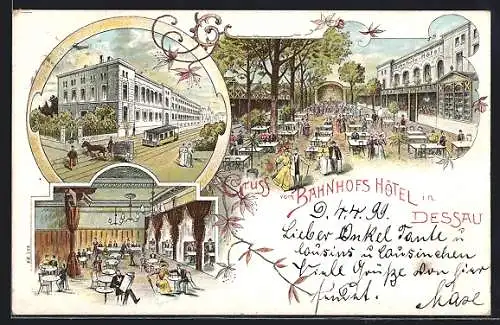 Gruss vom BAHNHOFS HÔTEL in
DESSAU
D. 4.4.99.
Lieber Onkel Tante u
Cousins u Cousinchen
Viele Grüße von hier
sendet.